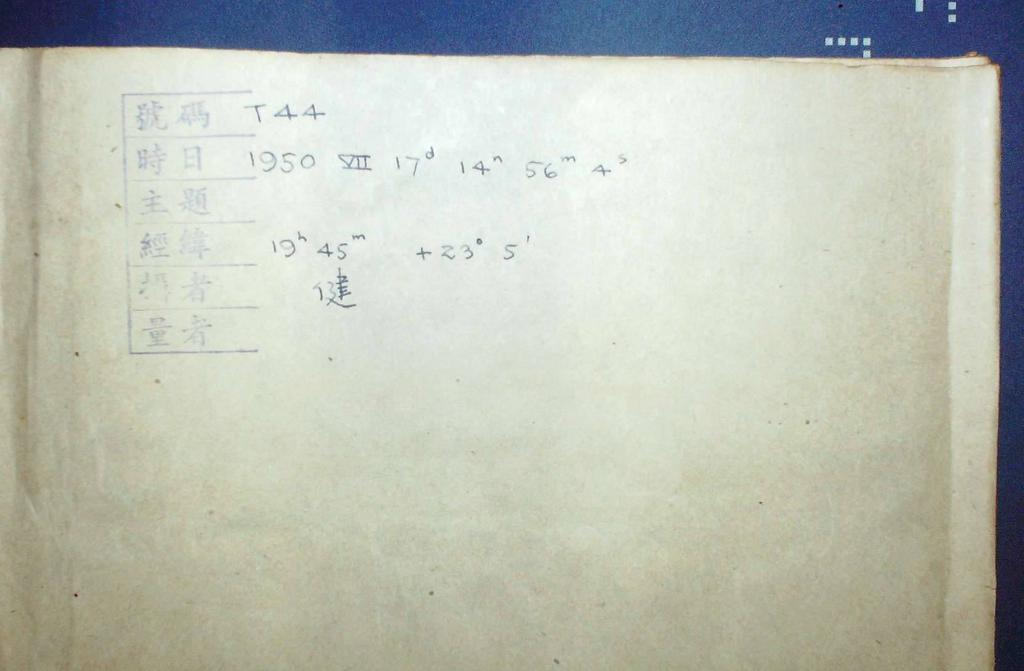 號碼 T 44
時日 1950 VII 17ᵈ 14ʰ 56ᵐ 4ˢ
主題
經緯 19ʰ 45ᵐ +23° 5'
攝者 健
量者